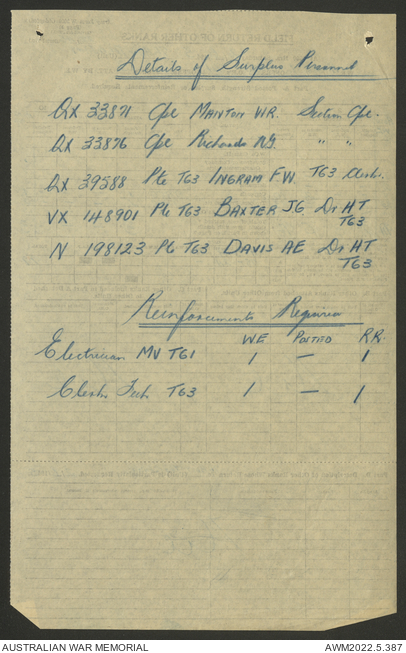 Details of Surplus Personnel
QX 33871 Cpl MANTON W.R. Section Cpl.
QX 33876 Cpl Richards R.G. " "
QX 39588 Pte TG3 INGRAM F W. TG3 Clerk.
VX 148901 Pte TG3 BAXTER J.G. Dr HT
TG3
N 198123 Pte TG3 DAVIS AE Dr HT
TG3
Reinforcements Required
W.E. POSTED R.R.
Electrician MV TG1 1 — 1
Clerk Tech TG3 1 — 1
AUSTRALIAN WAR MEMORIAL AWM2022.5.387